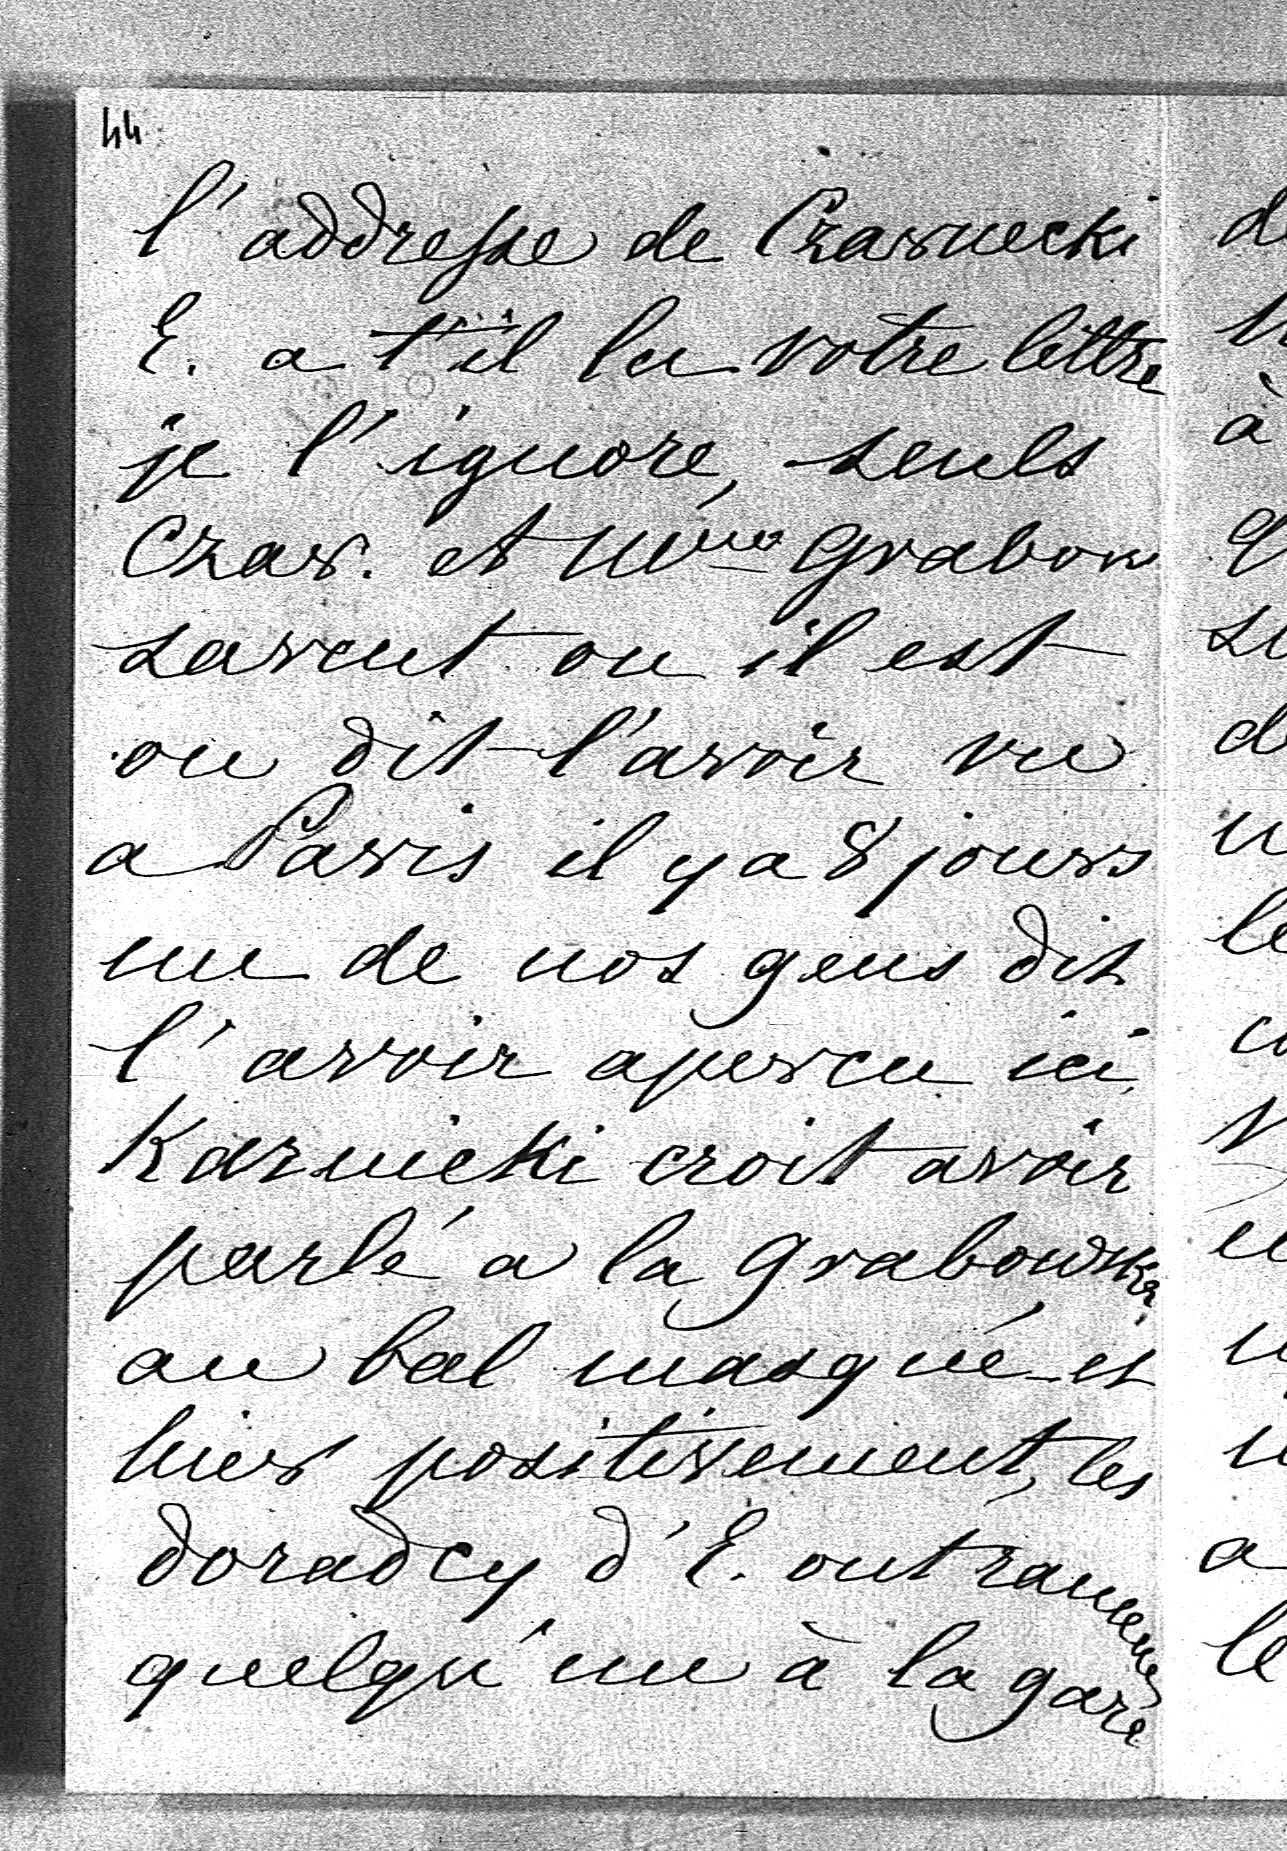 44
l'addresse de Czarnecki
E. a t'il lu votre lettre
je l'ignore, seuls
Czar. et Mme Grabow
savent ou il est
on dit l'avoir vu
a Paris il y a 8 jours
un de nos gens dit
l'avoir apercu ici,
Karnicki croit avoir
parlé a la Grabowska
au bal masqué et
hier positivement, les
doradcy d'E. ont ramené
quelqu'un à la gare